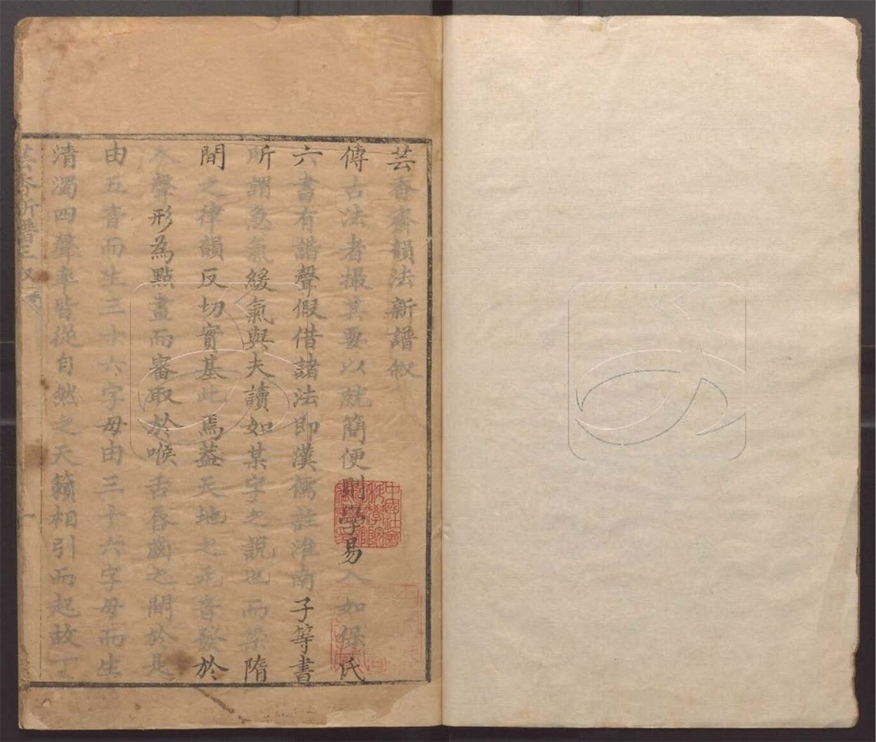 芸香齋韻法新譜叙
傳古法者撮其要以就簡便則學易入如保氏
六書有諧聲假借諸法即漢儒註淮南子等書
所謂急氣緩氣與夫讀如某字之説也而字隋
間之律韻反切實基此焉葢天地之元音發於
人聲形為點畫而審取於喉舌唇齒之間於是
由五音而生三十六字母由三十六字母而生
清濁四聲率皆從自然之天籟相引而起故丁
芸香新譜
一